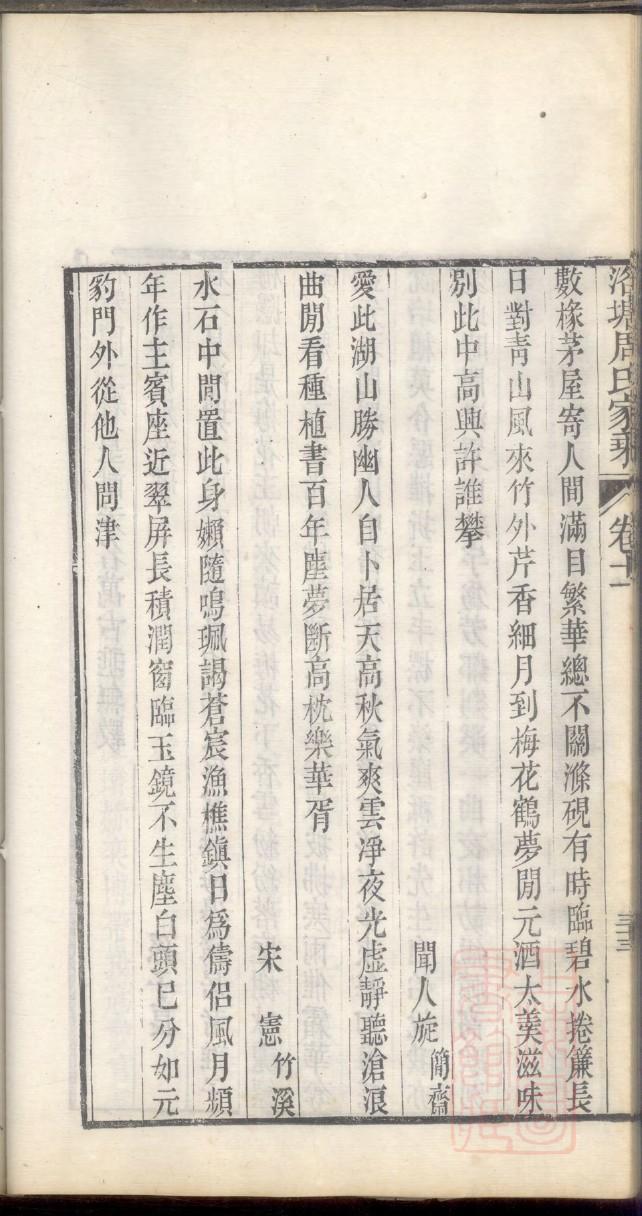 洛塘周氏家乘 卷十二 三十三
數椽茅屋寄人間滿目繁華總不關滌硯有時臨碧水捲簾長
日對靑山風來竹外芹香細月到梅花鶴夢閒元酒太羹滋味
別此中高興許誰攀
聞人旋簡齋
愛此湖山勝幽人自卜居天高秋氣爽雲凈夜光虛靜聽滄浪
曲閒看種植書百年塵夢斷高枕樂華胥
宋憲竹溪
水石中閒置此身嬾隨鳴珮謁蒼宸漁樵鎭日爲儔侶風月頻
年作主賓座近翠屏長積潤窗臨玉鏡不生塵白頭已分如元
豹門外從他人問津